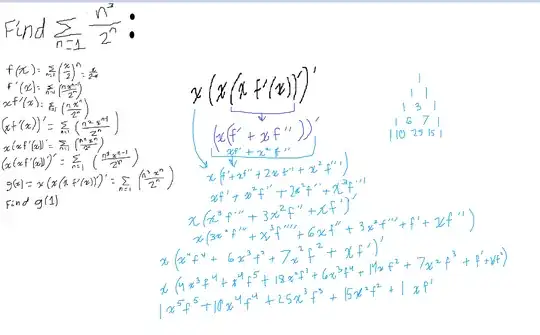 Find \sum_{n=1} \frac{n^3}{2^n} :
f(x) = \sum_{n=1} (\frac{x}{2})^n = \frac{x}{2-x}
f'(x) = \sum_{n=1} (\frac{n x^{n-1}}{2^n})
x f'(x) = \sum_{n=1} (\frac{n x^n}{2^n})
(x f'(x))' = \sum_{n=1} (\frac{n^2 x^{n-1}}{2^n})
x(x f'(x))' = \sum_{n=1} (\frac{n^2 x^n}{2^n})
(x(x f'(x))')' = \sum_{n=1} (\frac{n^3 x^{n-1}}{2^n})
g(x) = x(x(x f'(x))')' = \sum_{n=1} (\frac{n^3 x^n}{2^n})
Find g(1)
x(x(x f'(x))')'
(x(f' + x f''))'
xf' + x² f''
x(f' + xf'' + 2xf'' + x² f''')
xf' + x² f'' + 2x² f'' + x³ f'''
x(x³ f''' + 3x² f'' + xf')'
x(3x² f''' + x³ f'''' + 6xf'' + 3x² f''' + f' + xf'')
x(x⁴ f⁴ + 6x³ f³ + 7x² f² + xf')'
x(4x³ f⁴ + x⁴ f⁵ + 18x² f³ + 6x³ f⁴ + 14x f² + 7x² f³ + f' + xf²)
1x⁵ f⁵ + 10x⁴ f⁴ + 25x³ f³ + 15x² f² + 1 xf'
1
1 1
1 3 1
1 6 7 1
1 10 25 15 1